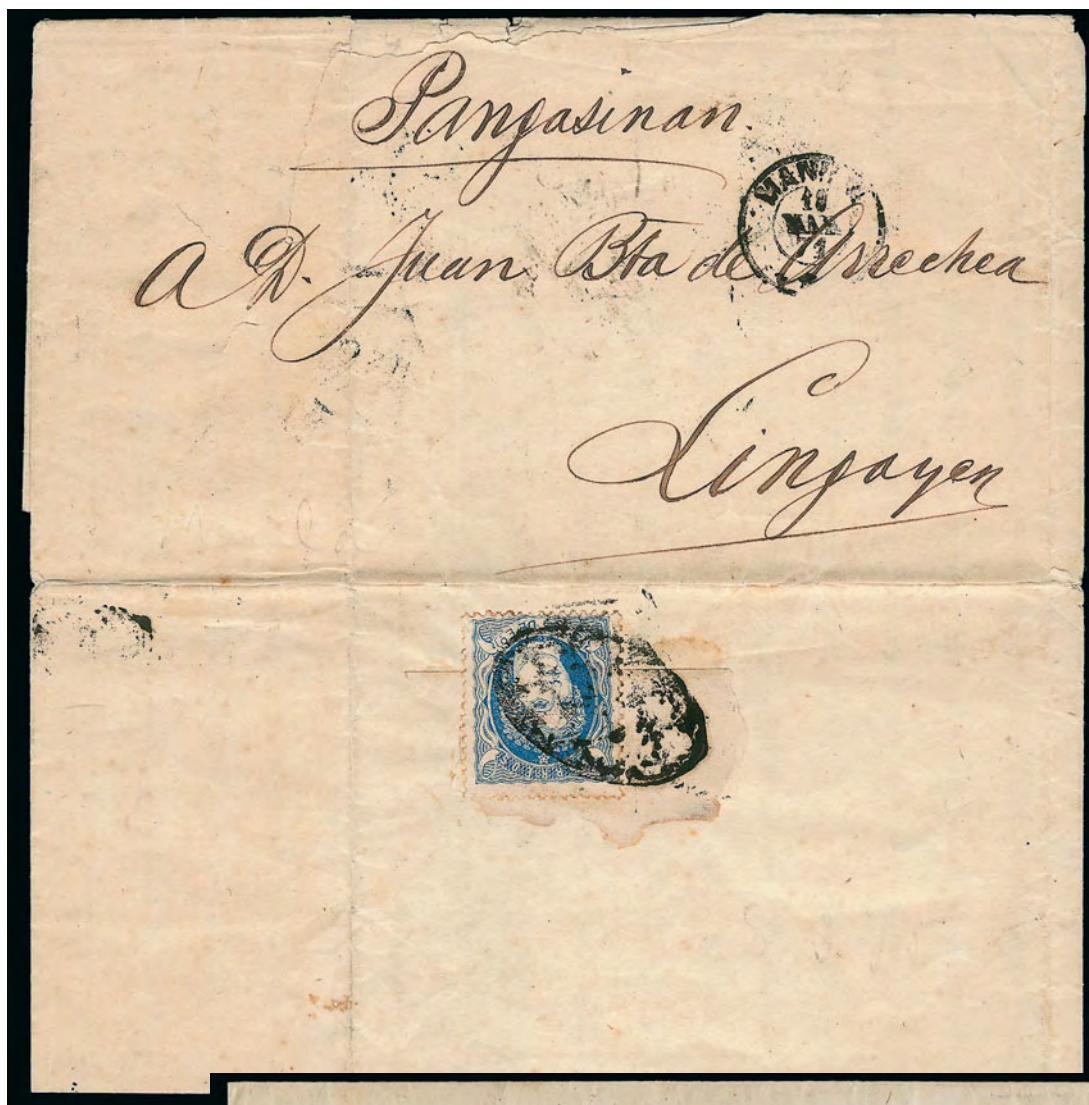 Pangasinan.
MANILA
10
MAR
A D. Juan Bta de Urrechea
Lingayen